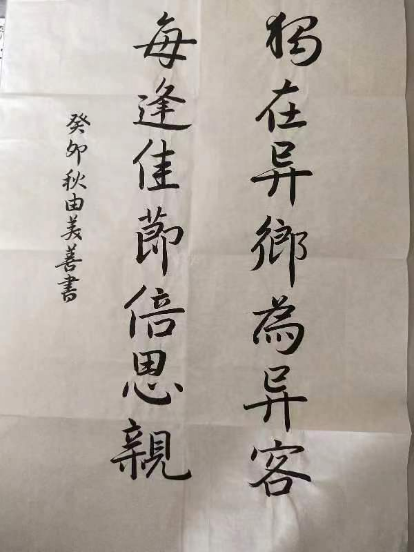 獨在异鄉為异客
每逢佳節倍思親
癸卯秋由美善書